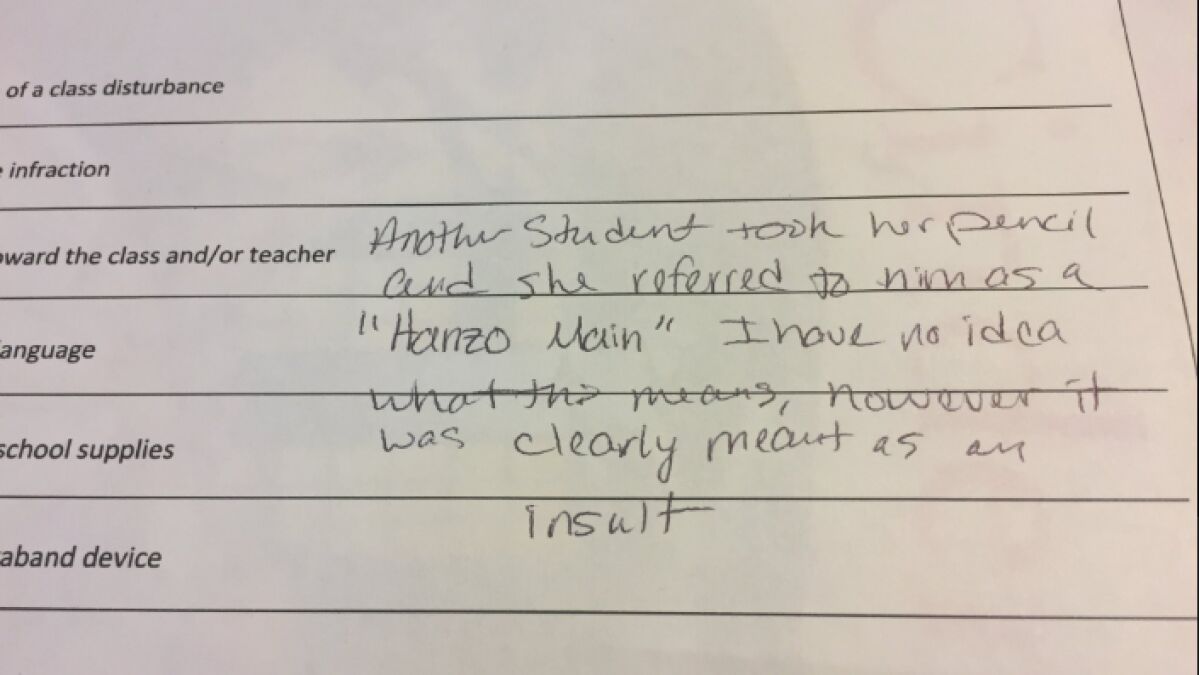 of a class disturbance
infraction
oward the class and/or teacher
Another Student took her pencil
and she referred to him as a
"Hanzo Main" I have no idea
anguage
what this means, however it
was clearly meant as an
school supplies
insult
aband device